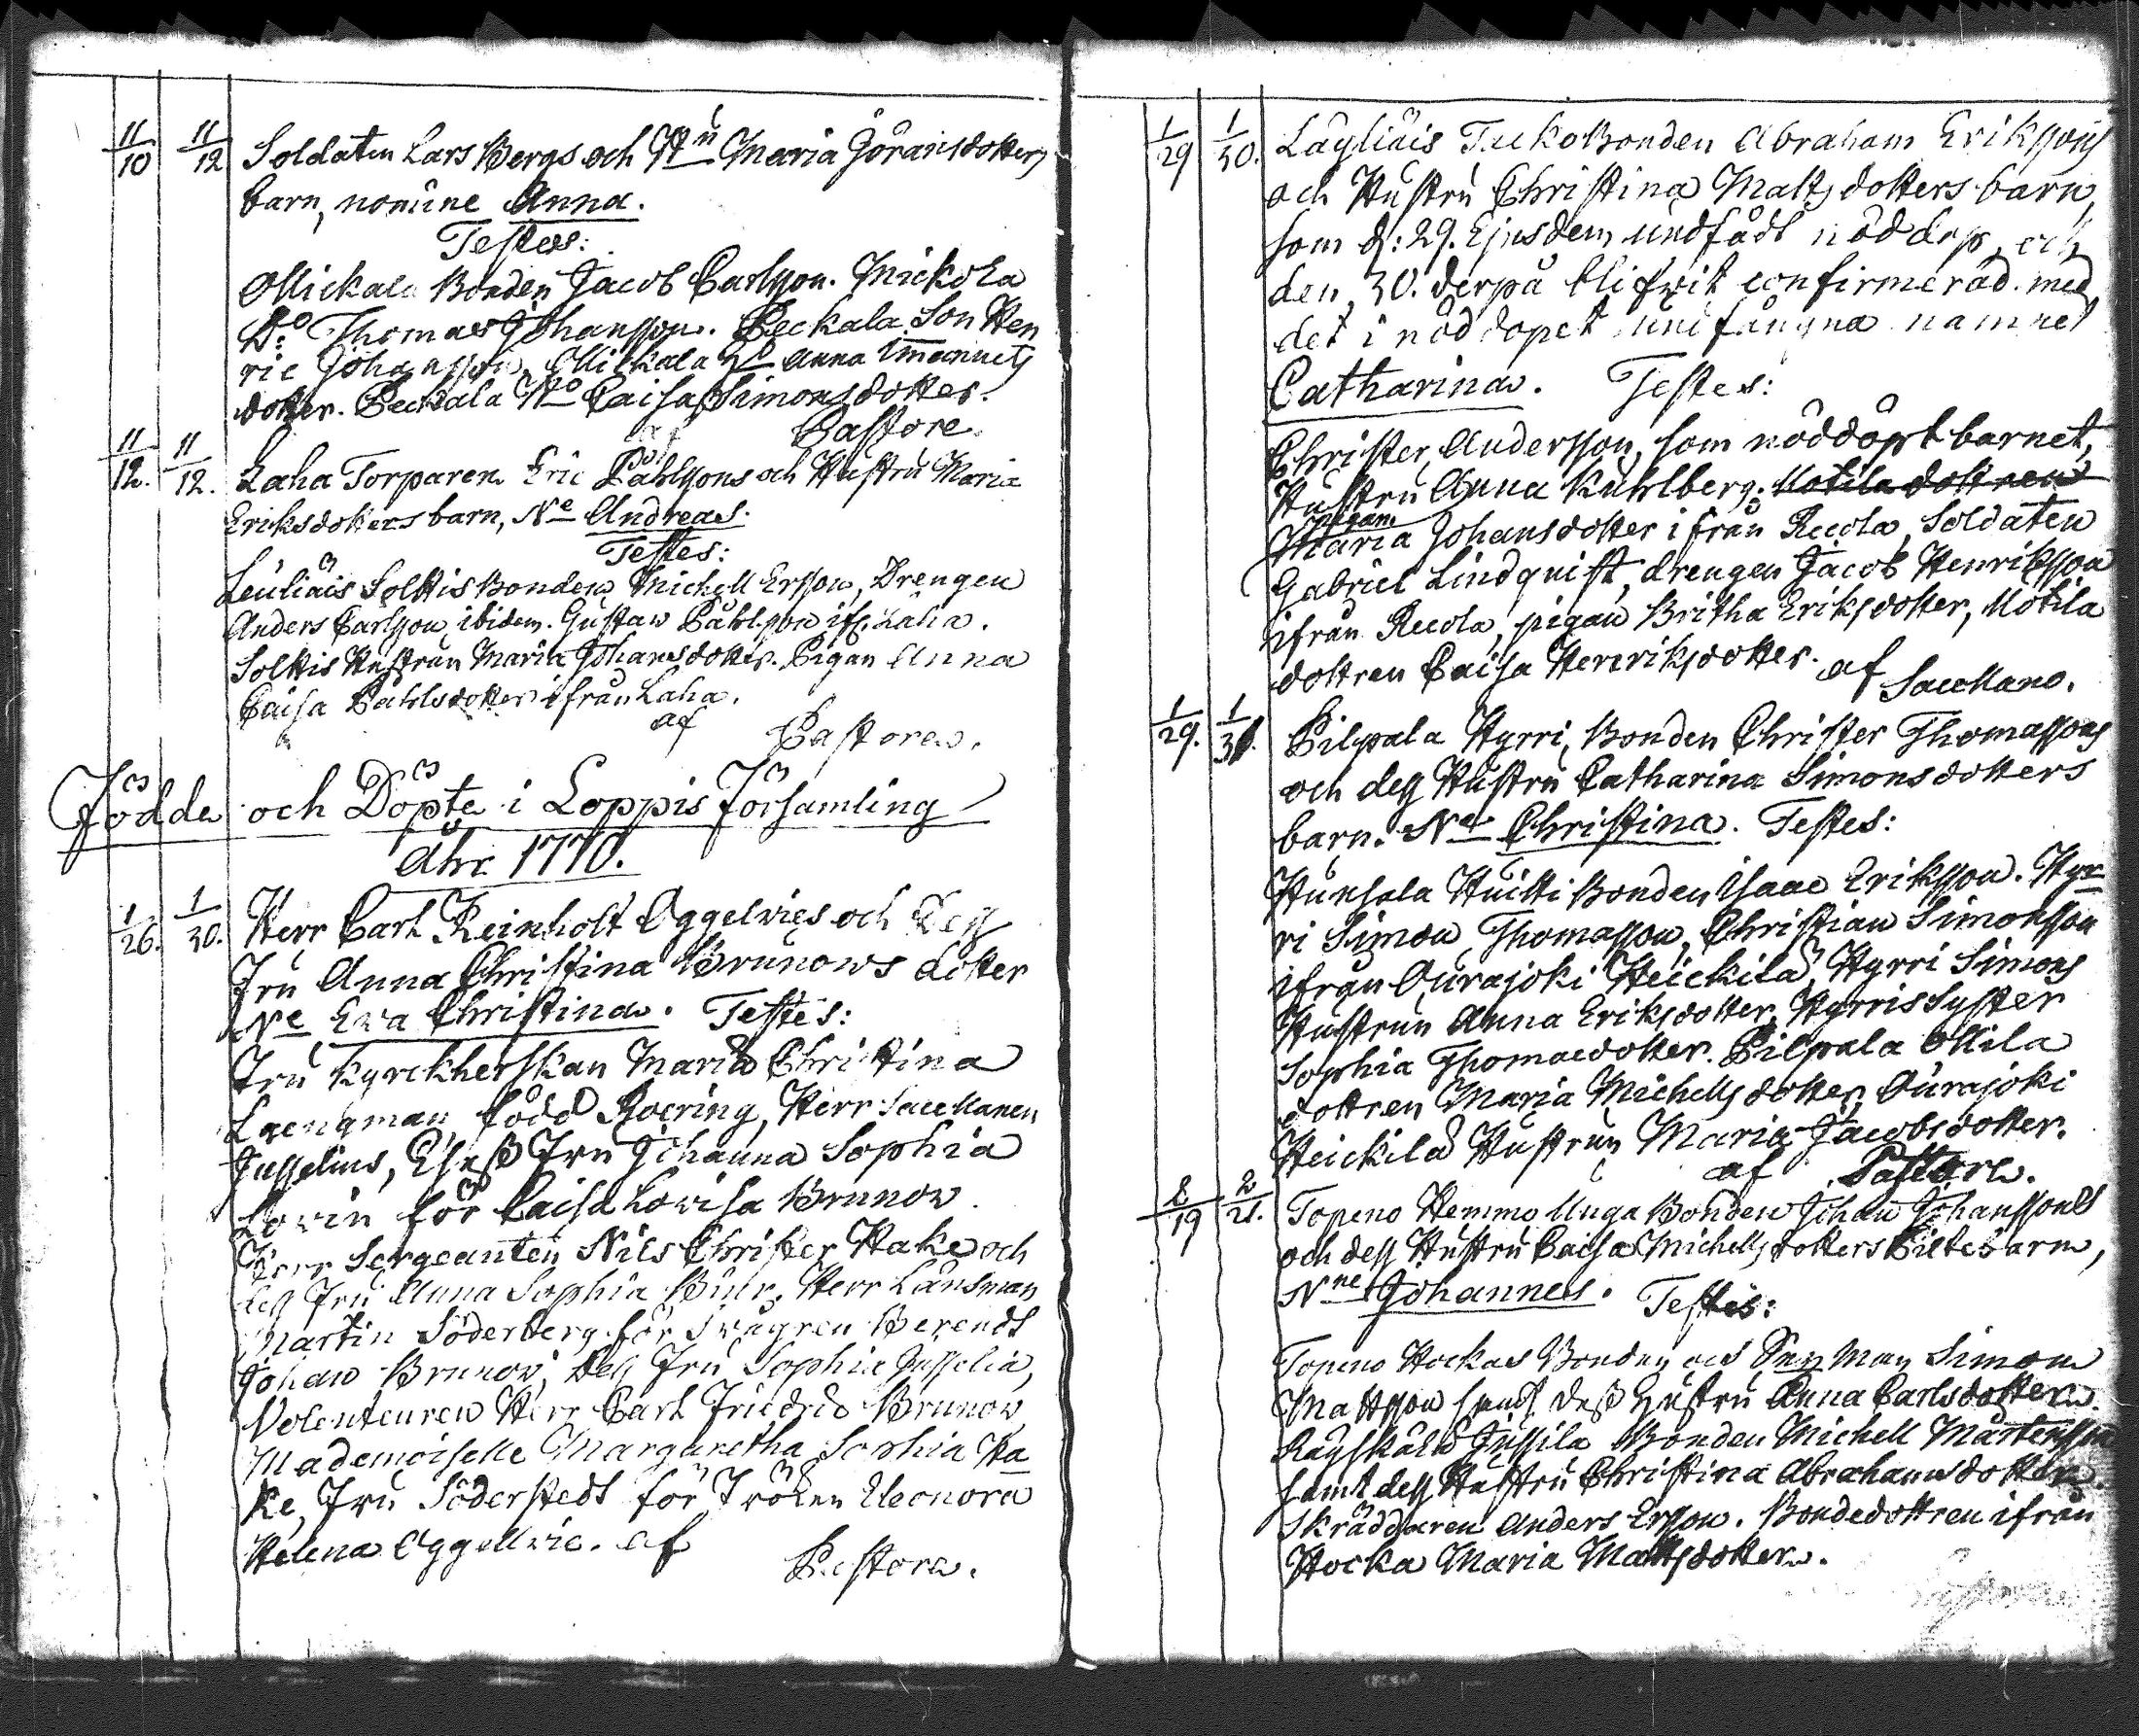 11/10 11/12 Soldaten Lars Bergs och Hu Maria Göransdotters
barn, nomine Anna.
Testes:
Mickala Bonden Jacob Carlsson. Mickola
Do Thomas Johansson. Peckala Son Hen
ric Johansson. Mickala Anna Immanuels
dotter. Peckala Caisa Simonsdotter.
af Pastore.
11/12. 11/12. Laha Torparen Eric Påhlssons och Hustru Maria
Eriksdotters barn, Ne Andreas.
Testes:
Leuliäis Solttis Bonden Michell Ersson, Drengen
Anders Carlsson ibidem. Gustaw Påhlsson ifr. Laha.
Solttis Hustrun Maria Johansdotter. Pigan Anna
Caisa Påhlsdotter ifrån Laha.
af Pastore.
Födde och Döpte i Loppis Församling
Åhr 1770.
1/26. 1/30. Herr Carl Reinholt Oggelvies och Dess
Fru Anna Christina Brunows dotter
Ne Ewa Christina. Testes:
Fru Kyrckherskan Maria Christina
Laengman född Roering, Herr Sacellanen
Jusselius, Fru Johanna Sophia
Lovin för Caisa Lovisa Brunow
Herr Sergeanten Nils Christer Hake och
dess Fru Anna Sophia Herr Länsman
Martin Söderberg för Swågren Berendt
Johan Brunow, Dess Fru Sophia Jusselia,
Volenteuren Herr Carl Friedric Brunow
Mademoiselle Margaretha Sophia Ha
ke, Fru Söderstedt för Fröken Eleonora
Helena Oggellvie. af
Pastore.
1/29 1/30. Läyliäis Tucko Bonden Abraham Erikssons
och Hustru Christina Matts dotters barn,
som d: 29. Ejusdem undfådt nöd dop, och
den 30. derpå blifwit confirmerad med
det i nöd dopet undfångna namnet
Catharina. Testes:
Christer Andersson, som nöddöpt barnet,
Hustru Anna Kuhlberg. Motila dottren
pigan
Maria Johansdotter ifrån Recola, Soldaten
Gabriel Lindquist, drengen Jacob Henriksson
ifrån Recola, pigan Britha Eriksdotter, Motila
dottren Caisa Henriksdotter. af Sacellano.
1/29. 1/31. Pilpala Hyrri Bonden Christer Thomassons
och dess Hustru Catharina Simonsdotters
barn. Ne Christina. Testes:
Hunsala Huitti Bonden Isaac Eriksson. Hyr
ri Simon Thomasson, Christian Simonsson
ifrån Aurajoki Heickilä, Hyrri Simons
Hustrun Anna Eriksdotter, Hyrris Syster
Sophia Thomaedotter. Pilpala Ollila
dottren Maria Michellsdotter, Aurajoki
Heickilä Hustrun Maria Jacobsdotter.
af Pastore.
2/19 2/21. Topeno Hemmo Unga Bonden Johan Johanssons
och dess Hustru Caisa Michellsdotters Piltebarn,
Nne Johannes. Testes:
Topeno Hockas Bonden och Simon
Mattsson samt Deß Hustru Anna Carlsdotter.
Räyskälä Jussila Bonden Michell Mårtensson
samt dess Hustru Christina Abrahamsdotter.
Skräddaren Anders Ersson. Bondedottren ifrån
Hocka Maria Mattsdotter.